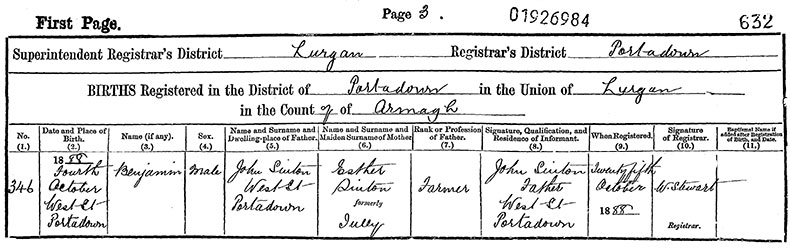 First Page.
Page 3.
01926984
632
Superintendent Registrar's District Lurgan Registrar's District Portadown
BIRTHS Registered in the District of Portadown in the Union of Lurgan
in the County of Armagh
No. (1.)
Date and Place of Birth. (2.)
Name (if any). (3.)
Sex. (4.)
Name and Surname and Dwelling-place of Father. (5.)
Name and Surname and Maiden Surname of Mother (6.)
Rank or Profession of Father. (7.)
Signature, Qualification, and Residence of Informant. (8.)
When Registered. (9.)
Signature of Registrar. (10.)
Baptismal Name if added after Registration of Birth, and Date. (11.)
346
1888
Fourth
October
West St
Portadown
Benjamin
Male
John Sinton
West St
Portadown
Esther
Sinton
formerly
Tully
Farmer
John Sinton
Father
West St
Portadown
Twenty fifth
October
1888
W. Stewart
Registrar.